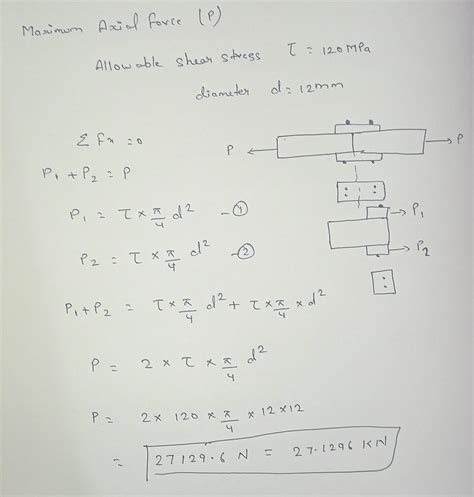 Maximum Axial Force (P)
Allowable shear stress τ = 120 MPa
diameter d = 12mm
Σ Fx = 0
P P
P₁ + P₂ = P
P₁ = τ × π/4 d² - ①
P₁
P₂ = τ × π/4 d² - ②
P₂
P₁ + P₂ = τ × π/4 d² + τ × π/4 × d²
P = 2 × τ × π/4 d²
P = 2 × 120 × π/4 × 12 × 12
= 27129.6 N = 27.1296 KN